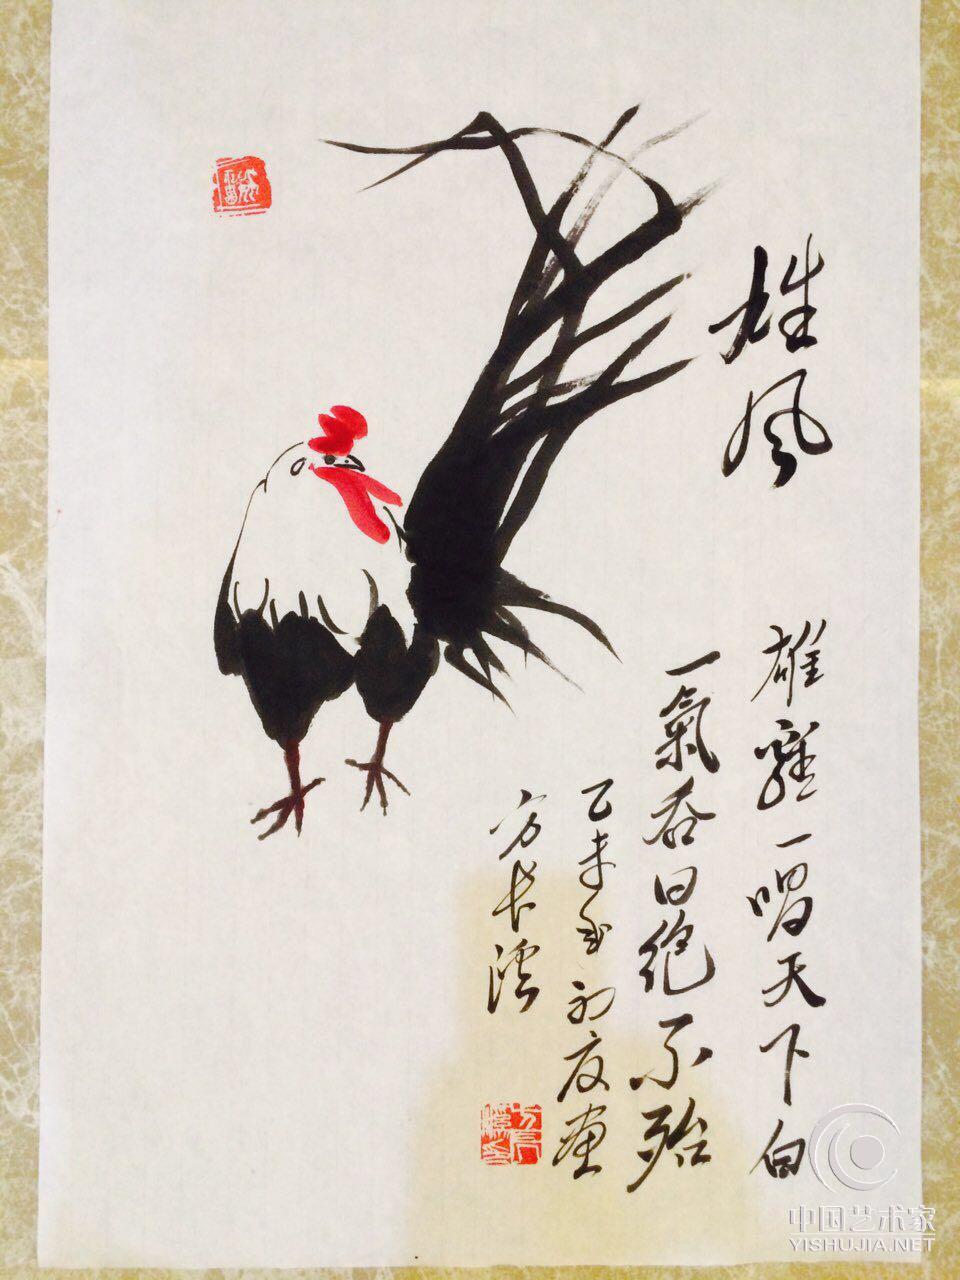 雄风
雄鸡一唱天下白
一氣吞日絶不殆
乙未初夏画
方长
中国艺术家
YISHUJIA.NET